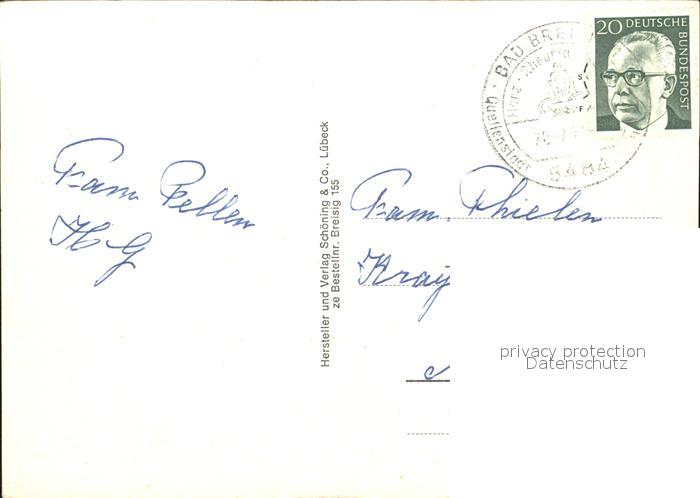 Fam. Pellen
Hersteller und Verlag Schöning & Co., Lübeck
ze Bestellnr. Breisig 155
BAD BREI
Quellenstadt
Herz · Rheuma
5484
20 DEUTSCHE
BUNDESPOST
Fam. Thielen
Kray
privacy protection
Datenschutz